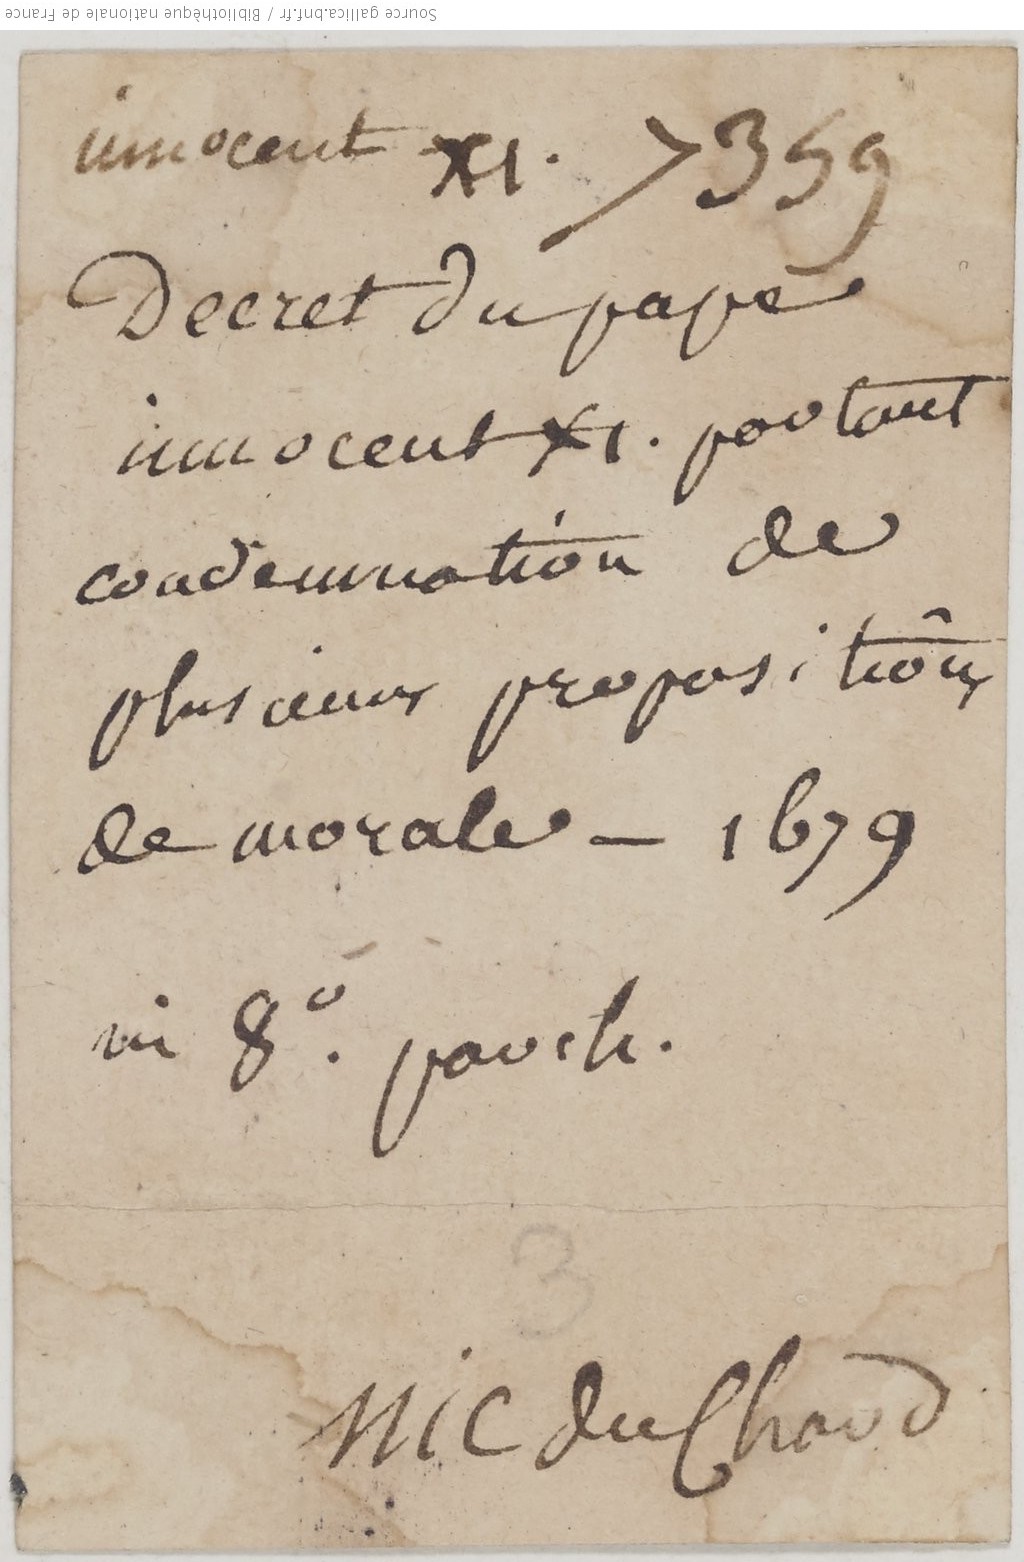 Source gallica.bnf.fr / Bibliothèque nationale de France
innocent XI. 7359
Decret du pape
innocent XI. portant
condemnation de
plusieurs propositiôns
de morale – 1679
in 8º. parch.
3
Nic du Chard